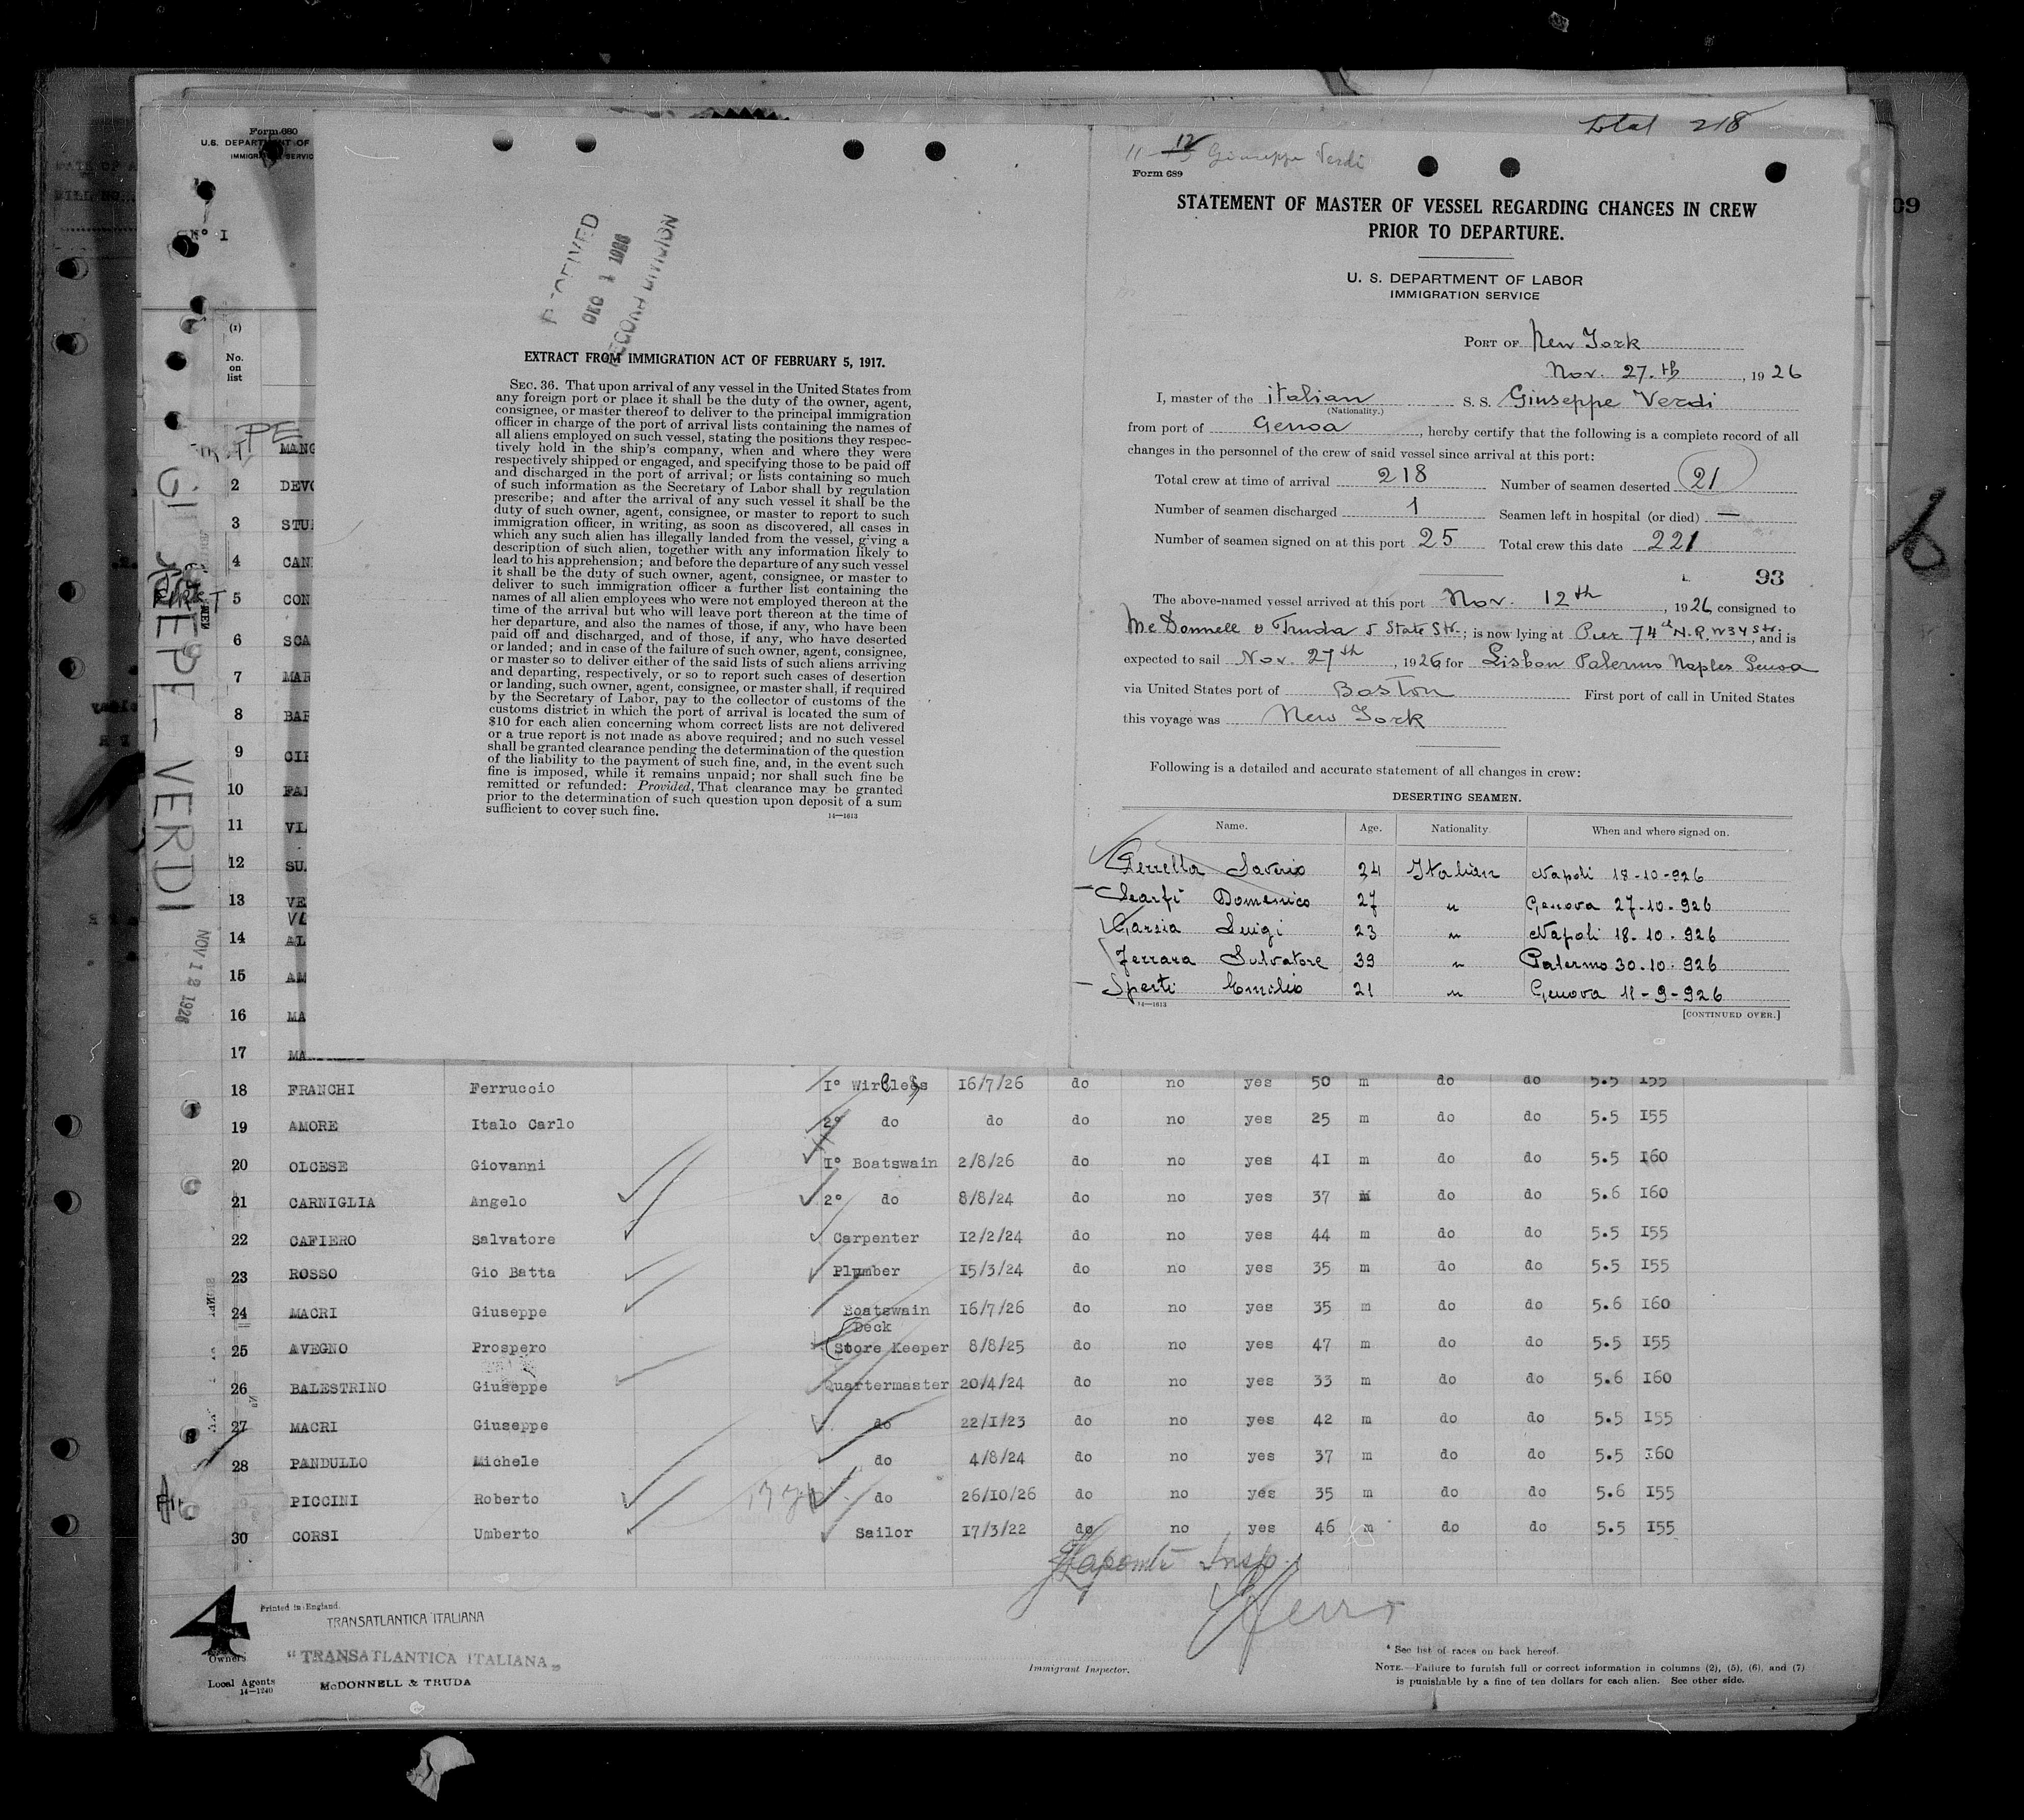 Total 218
Form 680
U. S. DEPARTMENT OF
IMMIGRATION SERVICE
No I
(1)
No.
on
list
GIUSEPPE VERDI
NOV 12 1926
MANG
2 DEVO
3 STU
4 CAN
5 CON
6 SCA
7 MAR
8 BAF
9 CIF
10 FAI
11 VI
12 SU
13 VE
14 AL
15 AM
16 MA
17 MA
RECEIVED
DEC 1 1926
RECORD DIVISION
EXTRACT FROM IMMIGRATION ACT OF FEBRUARY 5, 1917.
SEC. 36. That upon arrival of any vessel in the United States from
any foreign port or place it shall be the duty of the owner, agent,
consignee, or master thereof to deliver to the principal immigration
officer in charge of the port of arrival lists containing the names of
all aliens employed on such vessel, stating the positions they respec-
tively hold in the ship's company, when and where they were
respectively shipped or engaged, and specifying those to be paid off
and discharged in the port of arrival; or lists containing so much
of such information as the Secretary of Labor shall by regulation
prescribe; and after the arrival of any such vessel it shall be the
duty of such owner, agent, consignee, or master to report to such
immigration officer, in writing, as soon as discovered, all cases in
which any such alien has illegally landed from the vessel, giving a
description of such alien, together with any information likely to
lead to his apprehension; and before the departure of any such vessel
it shall be the duty of such owner, agent, consignee, or master to
deliver to such immigration officer a further list containing the
names of all alien employees who were not employed thereon at the
time of the arrival but who will leave port thereon at the time of
her departure, and also the names of those, if any, who have been
paid off and discharged, and of those, if any, who have deserted
or landed; and in case of the failure of such owner, agent, consignee,
or master so to deliver either of the said lists of such aliens arriving
and departing, respectively, or so to report such cases of desertion
or landing, such owner, agent, consignee, or master shall, if required
by the Secretary of Labor, pay to the collector of customs of the
customs district in which the port of arrival is located the sum of
$10 for each alien concerning whom correct lists are not delivered
or a true report is not made as above required; and no such vessel
shall be granted clearance pending the determination of the question
of the liability to the payment of such fine, and, in the event such
fine is imposed, while it remains unpaid; nor shall such fine be
remitted or refunded: Provided, That clearance may be granted
prior to the determination of such question upon deposit of a sum
sufficient to cover such fine.
14—1613
11 12 Giuseppe Verdi
Form 689
STATEMENT OF MASTER OF VESSEL REGARDING CHANGES IN CREW
PRIOR TO DEPARTURE.
U. S. DEPARTMENT OF LABOR
IMMIGRATION SERVICE
PORT OF New York
Nov. 27.th, 1926
I, master of the italian S. S. Giuseppe Verdi
(Nationality.)
from port of Genoa, hereby certify that the following is a complete record of all
changes in the personnel of the crew of said vessel since arrival at this port:
Total crew at time of arrival 218 Number of seamen deserted 21
Number of seamen discharged 1 Seamen left in hospital (or died) —
Number of seamen signed on at this port 25 Total crew this date 221
93
The above-named vessel arrived at this port Nov. 12th, 1926 consigned to
McDonnell & Truda 5 State Str.; is now lying at Pier 74th N.R. W34 Str., and is
expected to sail Nov. 27th, 1926 for Lisbon Palermo Naples Genoa
via United States port of Boston First port of call in United States
this voyage was New York
Following is a detailed and accurate statement of all changes in crew:
DESERTING SEAMEN.
Name. Age. Nationality When and where signed on.
Perrella Saverio 24 Italian Napoli 18-10-926
Scarfi Domenico 27 " Genova 27-10-926
Garsia Luigi 23 " Napoli 18-10-926
Ferrara Salvatore 39 " Palermo 30-10-926
Sperti Emilio 21 " Genova 11-9-926
14—1613
[CONTINUED OVER.]
18 FRANCHI Ferruccio I° Wireless 16/7/26 do no yes 50 m do do 5.5 155
19 AMORE Italo Carlo 2° do do do no yes 25 m do do 5.5 155
20 OLCESE Giovanni I° Boatswain 2/8/26 do no yes 41 m do do 5.5 160
21 CARNIGLIA Angelo 2° do 8/8/24 do no yes 37 m do do 5.6 160
22 CAFIERO Salvatore Carpenter 12/2/24 do no yes 44 m do do 5.5 155
23 ROSSO Gio Batta Plumber 15/3/24 do no yes 35 m do do 5.5 155
24 MACRI Giuseppe Boatswain 16/7/26 do no yes 35 m do do 5.6 160
Deck
25 AVEGNO Prospero Store Keeper 8/8/25 do no yes 47 m do do 5.5 155
26 BALESTRINO Giuseppe Quartermaster 20/4/24 do no yes 33 m do do 5.6 160
27 MACRI Giuseppe do 22/1/23 do no yes 42 m do do 5.5 155
28 PANDULLO Michele do 4/8/24 do no yes 37 m do do 5.5 160
29 PICCINI Roberto do 26/10/26 do no yes 35 m do do 5.6 155
30 CORSI Umberto Sailor 17/3/22 do no yes 46 m do do 5.5 155
4
Printed in England.
TRANSATLANTICA ITALIANA
Owners "TRANSATLANTICA ITALIANA"
Local Agents McDONNELL & TRUDA
14—1240
Insp.
Immigrant Inspector.
* See list of races on back hereof.
NOTE.—Failure to furnish full or correct information in columns (2), (5), (6), and (7)
is punishable by a fine of ten dollars for each alien. See other side.